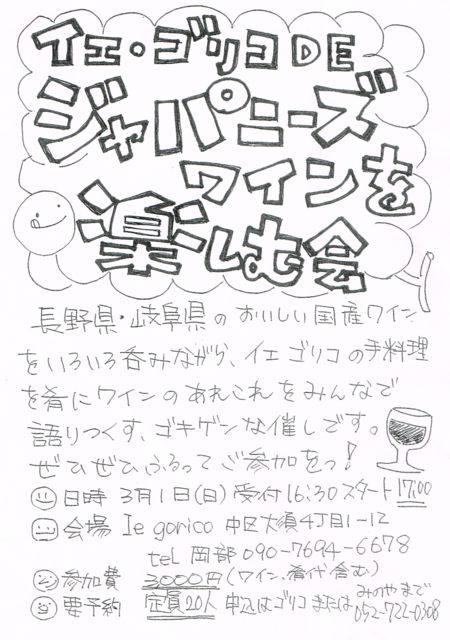 イエ・ゴリコDE
ジャパニーズ
ワインを
楽しむ会
長野県・岐阜県のおいしい国産ワイン
をいろいろ呑みながら、イエゴリコの手料理
を肴にワインのあれこれをみんなで
語りつくす、ゴキゲンな催しです。
ぜひぜひふるってご参加をっ!
日時 3月1日(日) 受付16:30 スタート17:00
会場 Ie gorico 中区大須4丁目1-12
tel 岡部 090-7694-6678
参加費 3000円(ワイン、肴代含む)
要予約 定員20人 申込はゴリコまたは みのやまで 052-722-0308